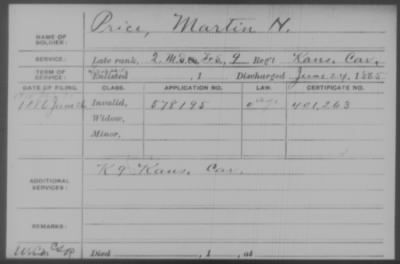 NAME OF SOLDIER: Price, Martin H.
SERVICE: Late rank, 2. M. Sgt. 9 Regt Kans. Cav.
TERM OF SERVICE: Enlisted , 1 Discharged June 24, 1865
DATE OF FILING. CLASS. APPLICATION NO. LAW. CERTIFICATE NO.
1886 June Invalid, 578195 401,263
Widow,
Minor,
ADDITIONAL SERVICES: K 9 Kans. Cav.
REMARKS:
Died , 1 , at